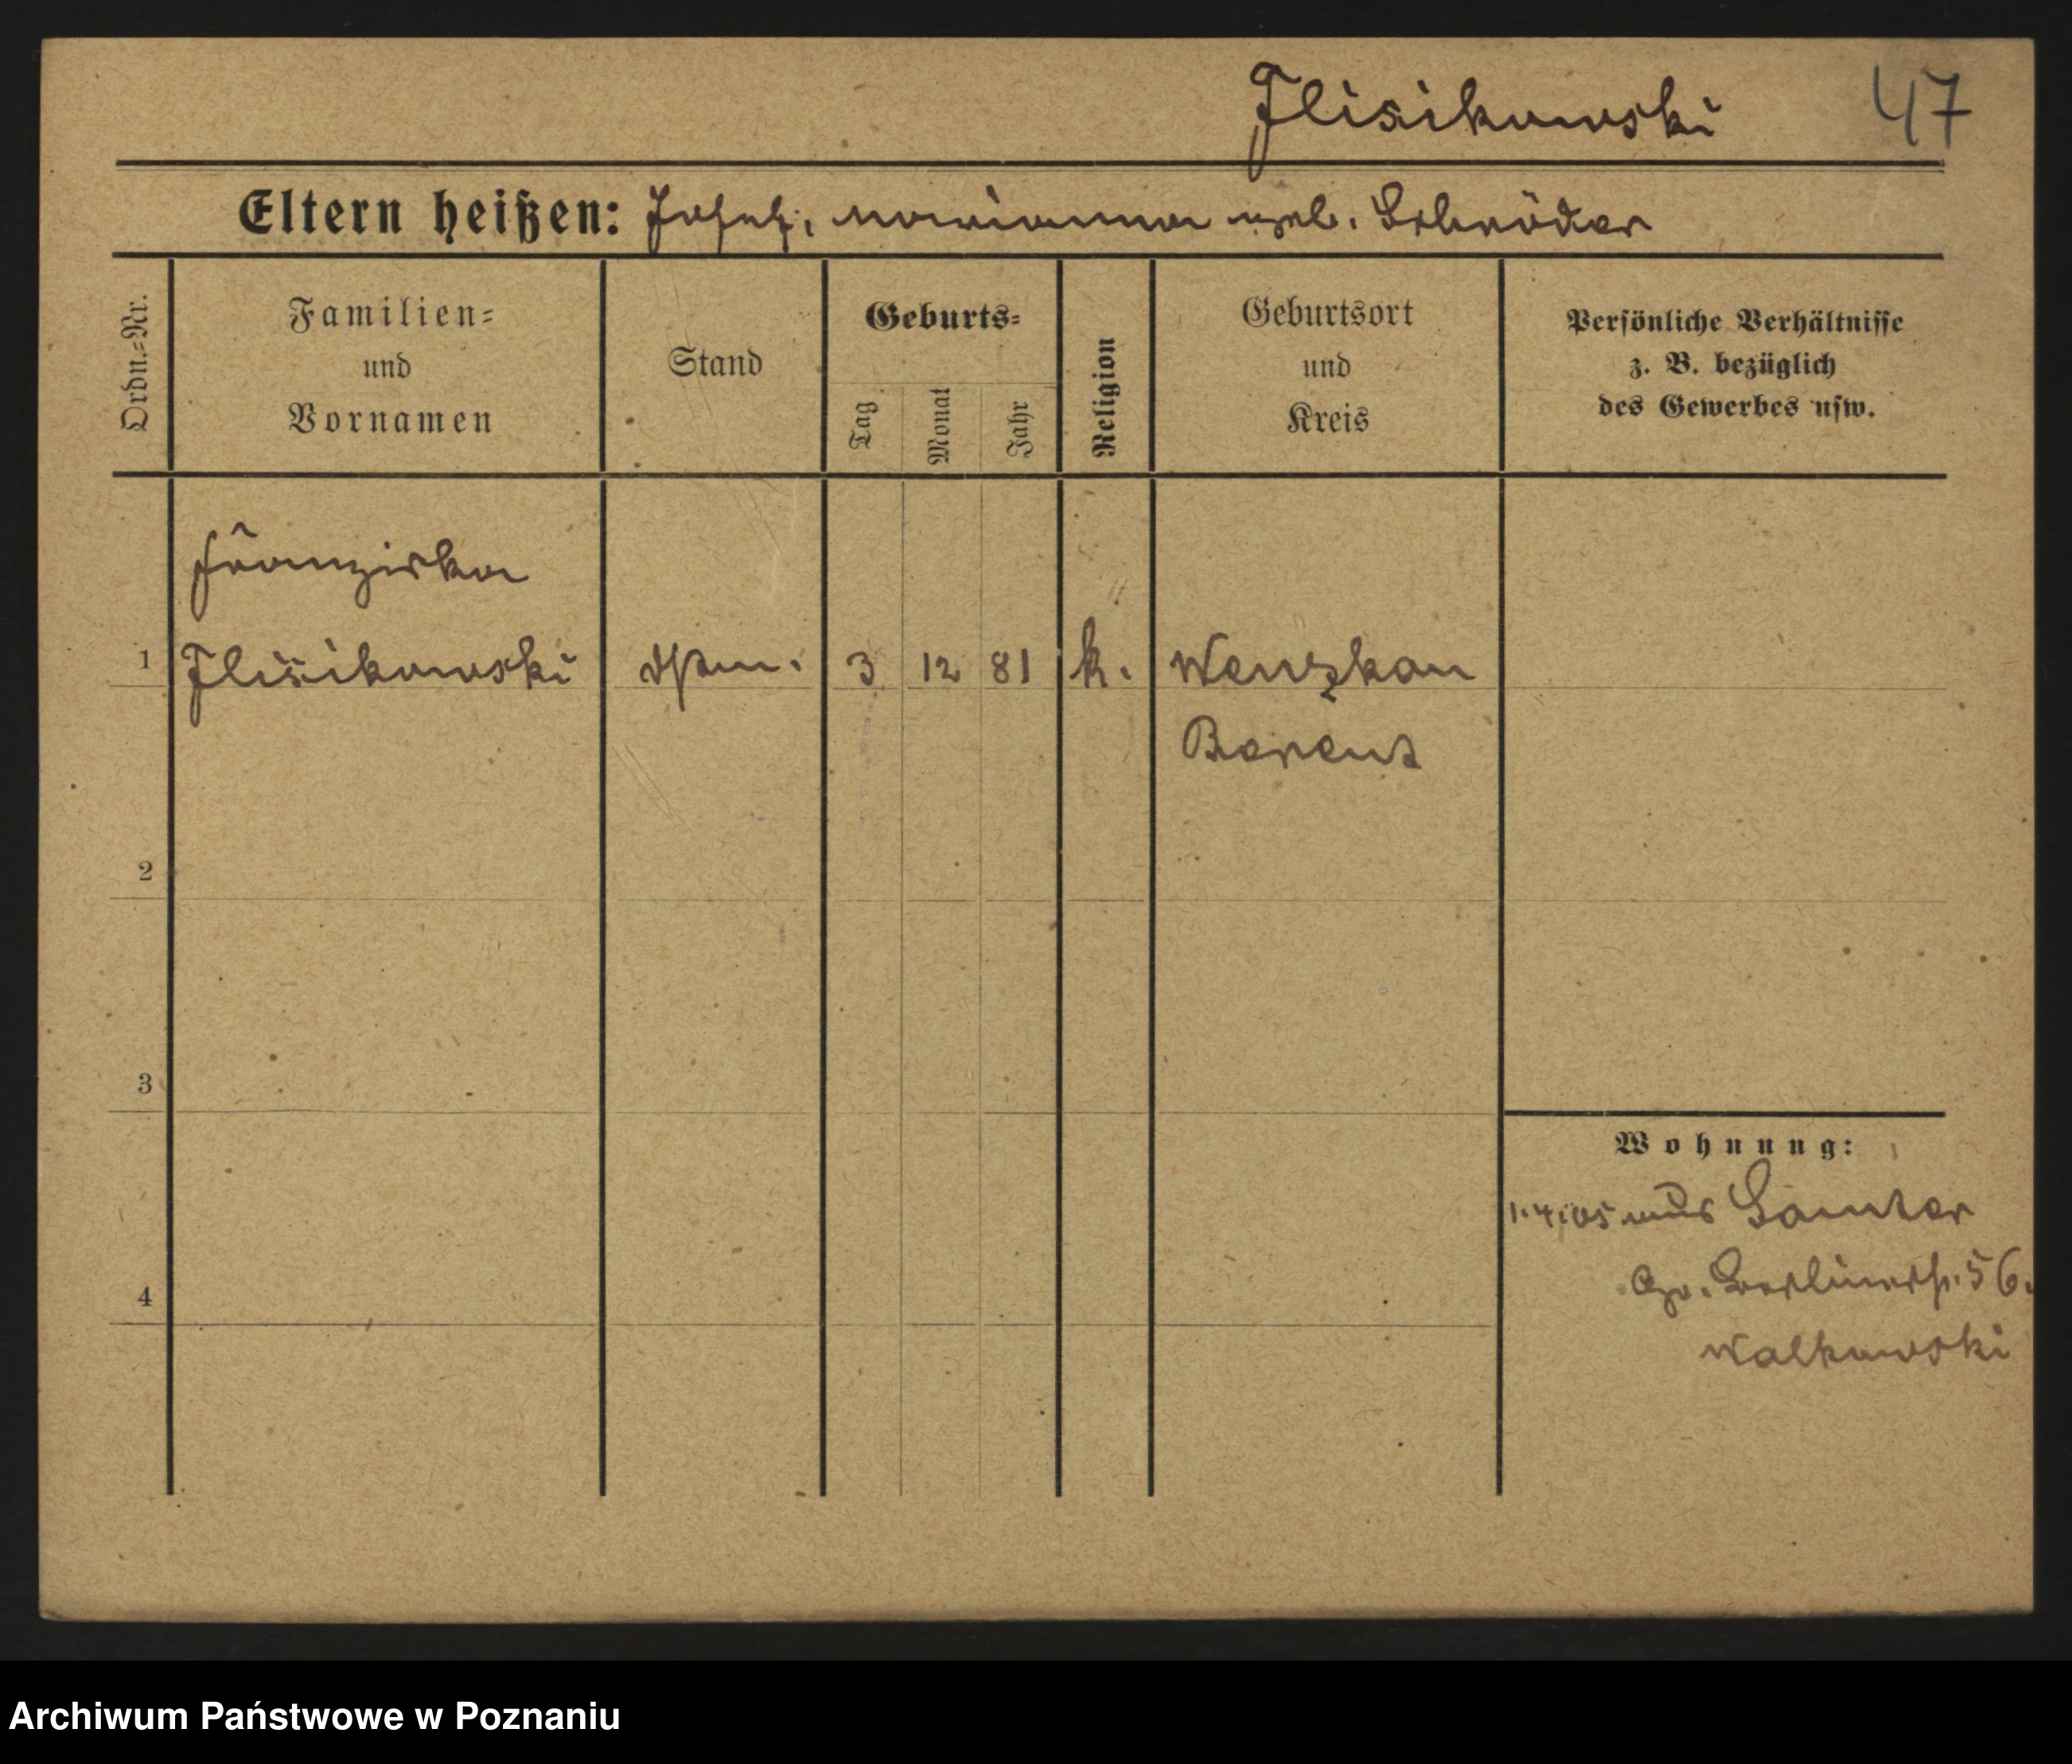 Flisikowski 47
Eltern heißen: Josef, Marianna geb. Schröder
Ordn.=Nr.
Familien=
und
Vornamen
Stand
Geburts=
Tag
Monat
Jahr
Religion
Geburtsort
und
Kreis
Persönliche Verhältnisse
z. B. bezüglich
des Gewerbes usw.
Franziska
1 Flisikowski 3 12 81 k. Wenzkau
Berent
2
3
Wohnung:
1.4.05 aus Samter
Gr. Berlinerstr. 56.
Walkowski
4
Archiwum Państwowe w Poznaniu